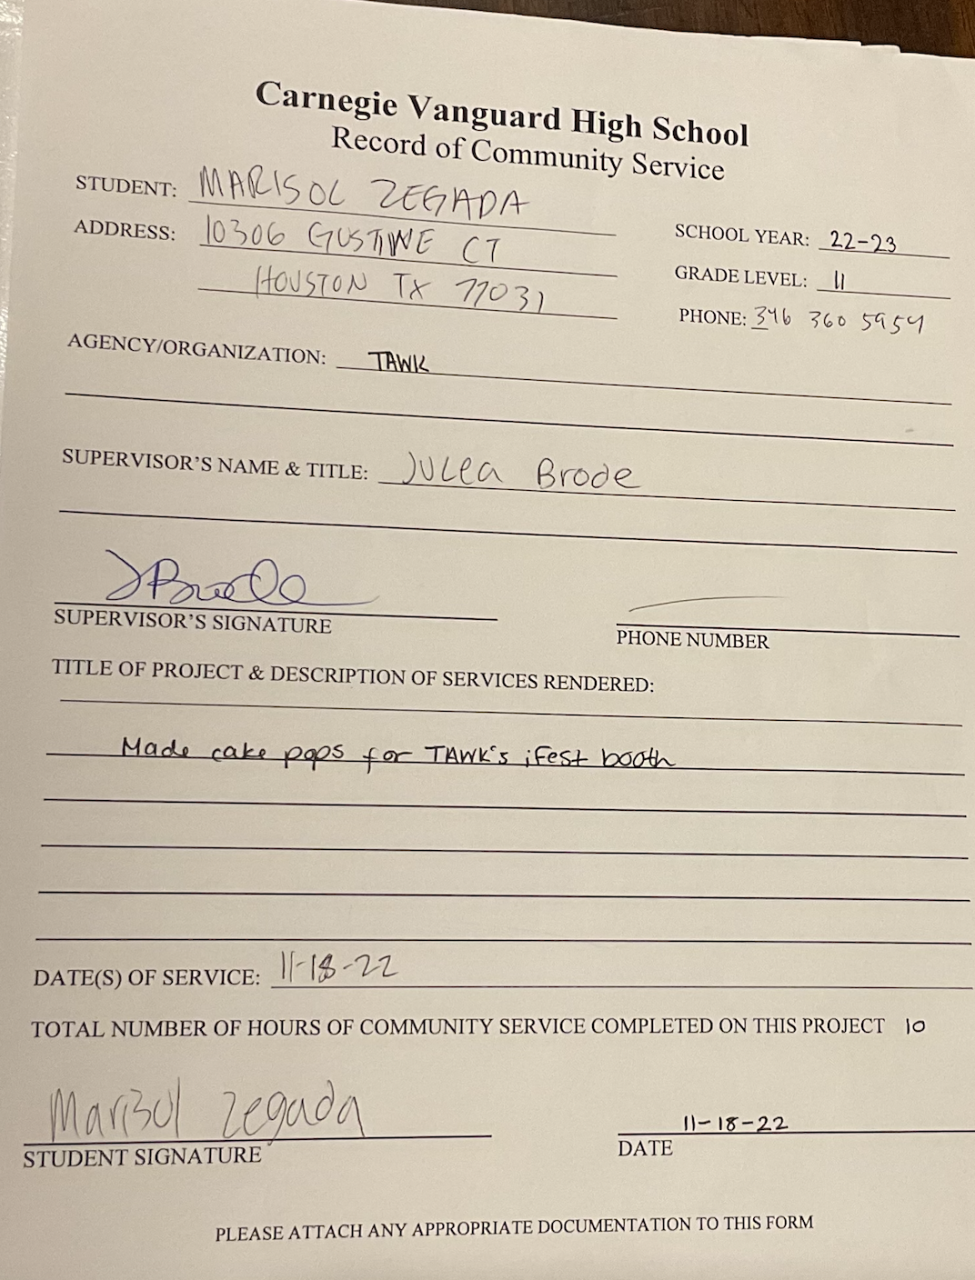 Carnegie Vanguard High School
Record of Community Service
STUDENT: MARISOL ZEGADA
ADDRESS: 10306 GUSTINE CT
HOUSTON TX 77031
SCHOOL YEAR: 22-23
GRADE LEVEL: 11
PHONE: 346 360 5954
AGENCY/ORGANIZATION: TAWK
SUPERVISOR'S NAME & TITLE: Julea Brode
JBrode
SUPERVISOR'S SIGNATURE
PHONE NUMBER
TITLE OF PROJECT & DESCRIPTION OF SERVICES RENDERED:
Made cake pops for TAWK's iFest booth
DATE(S) OF SERVICE: 11-18-22
TOTAL NUMBER OF HOURS OF COMMUNITY SERVICE COMPLETED ON THIS PROJECT 10
Marisol Zegada
STUDENT SIGNATURE
11-18-22
DATE
PLEASE ATTACH ANY APPROPRIATE DOCUMENTATION TO THIS FORM